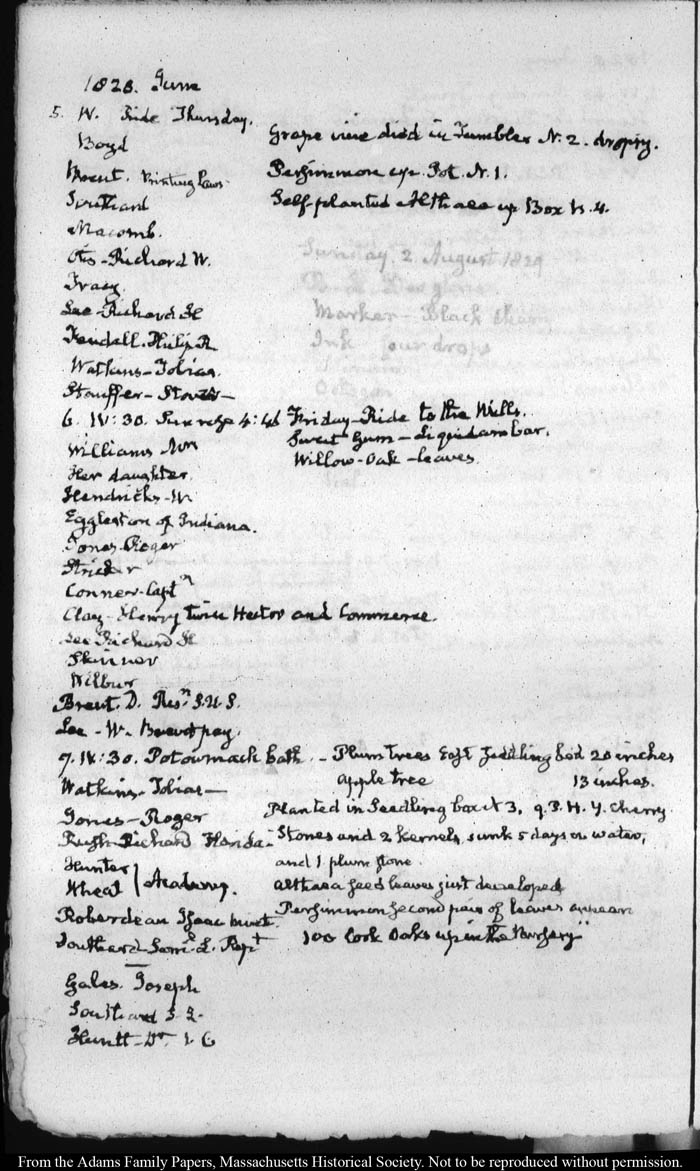 1828. June
5. IV. Ride Thursday.
Boyd
Grape vine died in Tumbler N. 2. dropsy.
Brent. Printing Laws
Persimmon up. Pot. N. 1.
Southard
Self-planted Althaea up Box N. 4.
Macomb.
Otis-Richard W.
Sunday 2. August 1829
Tracy.
Lee-Richard H
Marker-Black
Kendall. Philip R
Ink four drops
Watkins-Tobias.
Stouffer-Stover
6. IV:30. Sun rose 4:46 Friday-Ride to the Mills.
Sweet Gum-Liquidambar.
Williams Mrs
Willow-Oak-leaves.
Her daughter.
Hendricks-W.
Eggleston of Indiana.
Jones-Roger
Conner-Capt.n
Clay-Henry twice Hector and Commerce.
Lee Richard H
Skinner
Wilbur
Brent. D. Res.n
Lee-W.
7. IV:30. Potowmack bath.-Plum trees East Seedling bed 20 inches
Watkins-Tobias—
apple tree 13 inches.
Jones-Roger
Planted in Seedling box N 3, 9. P. H. Y. Cherry
Richard Florida
Stones and 2 kernels, sunk 5 days in water,
Hunter
and 1 plum stone.
Wheat } Academy.
althaea seed leaves just developed
Roberdeau Isaac
Persimmon second pair of leaves appear
Southard Sam.l L. Rep.t
100 Cork Oaks up in the Nursery
Gales. Joseph
Southard S. L.
Huntt-Dr
From the Adams Family Papers, Massachusetts Historical Society. Not to be reproduced without permission